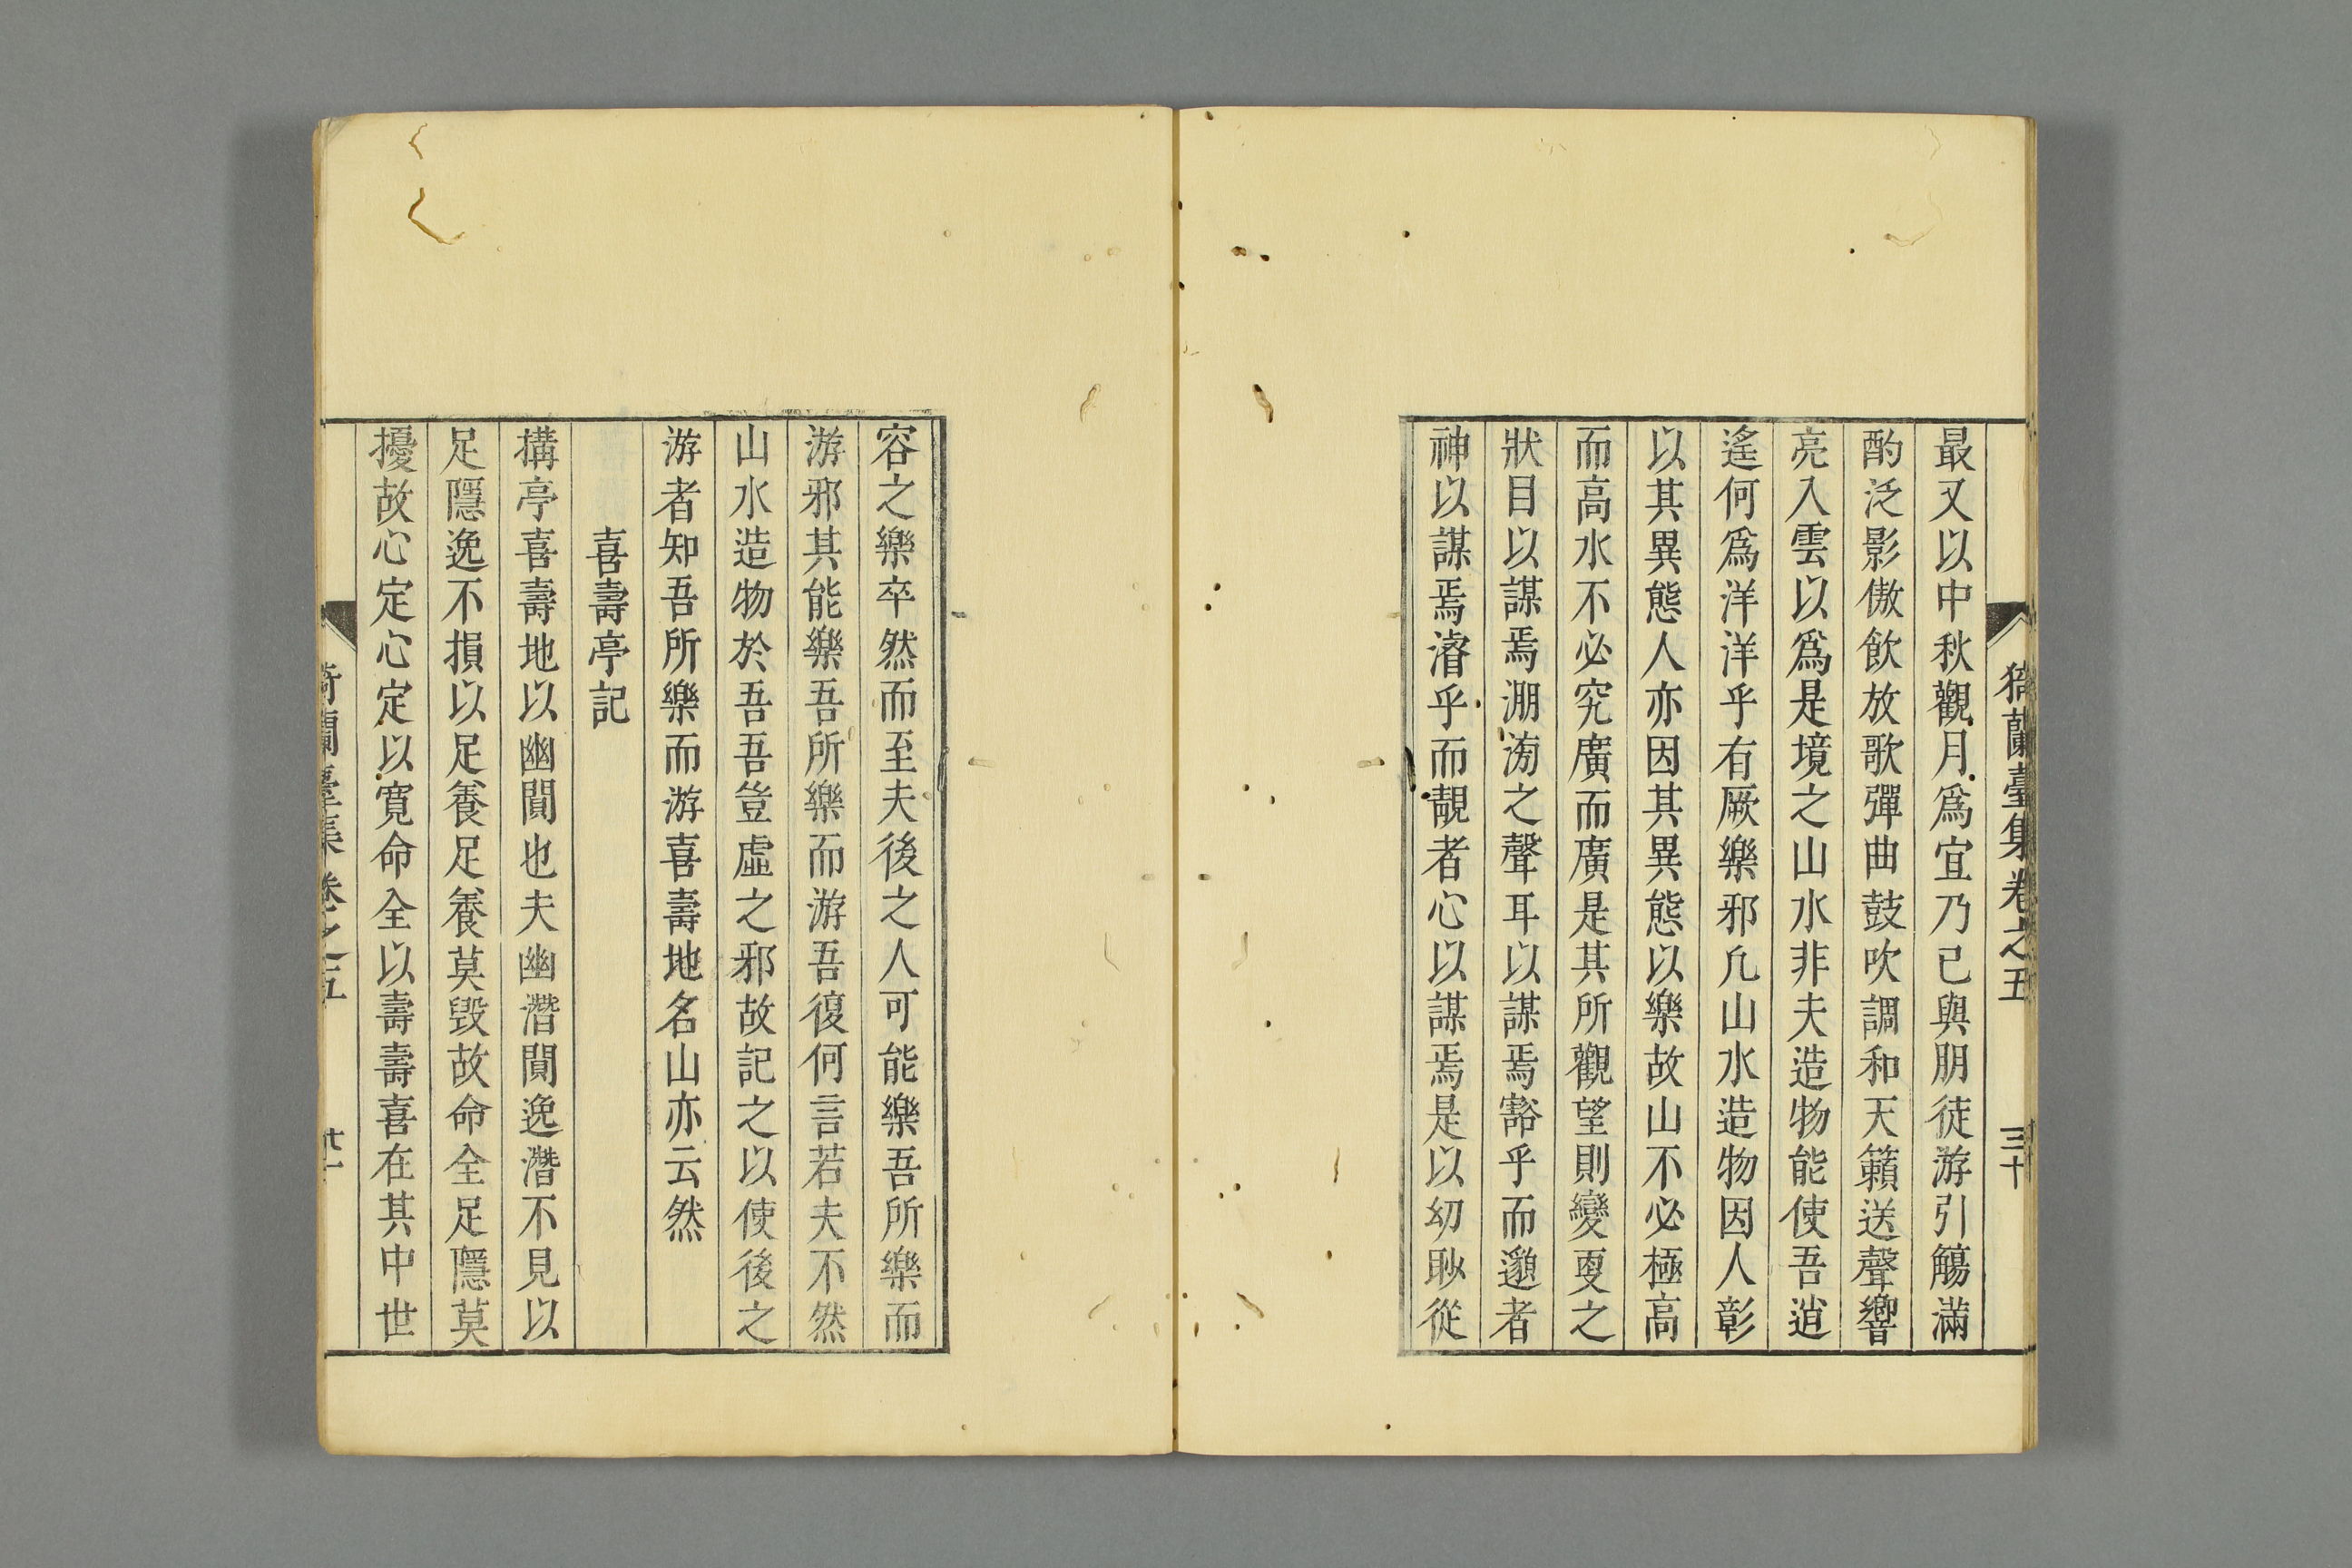 猗蘭臺集卷之五 三十
最又以中秋觀月爲宜乃已與朋徒游引觴滿
酌泛影傲飲放歌彈曲鼓吹調和天籟送聲響
亮入雲以爲是境之山水非夫造物能使吾逍
遙何爲洋洋乎有厥樂邪凢山水造物因人彰
以其異態人亦因其異態以樂故山不必極高
而高水不必究廣而廣是其所觀望則變更之
狀目以謀焉淜滂之聲耳以謀焉豁乎而邈者
神以謀焉濬乎而靚者心以謀焉是以幼眇從
容之樂卒然而至夫後之人可能樂吾所樂而
游邪其能樂吾所樂而游吾復何言若夫不然
山水造物於吾吾豈虛之邪故記之以使後之
游者知吾所樂而游喜壽地名山亦云然
喜壽亭記
搆亭喜壽地以幽閒也夫幽潛閒逸潛不見以
足隱逸不損以足養足養莫毀故命全足隱莫
擾故心定心定以寬命全以壽壽喜在其中世
猗蘭臺集卷之五